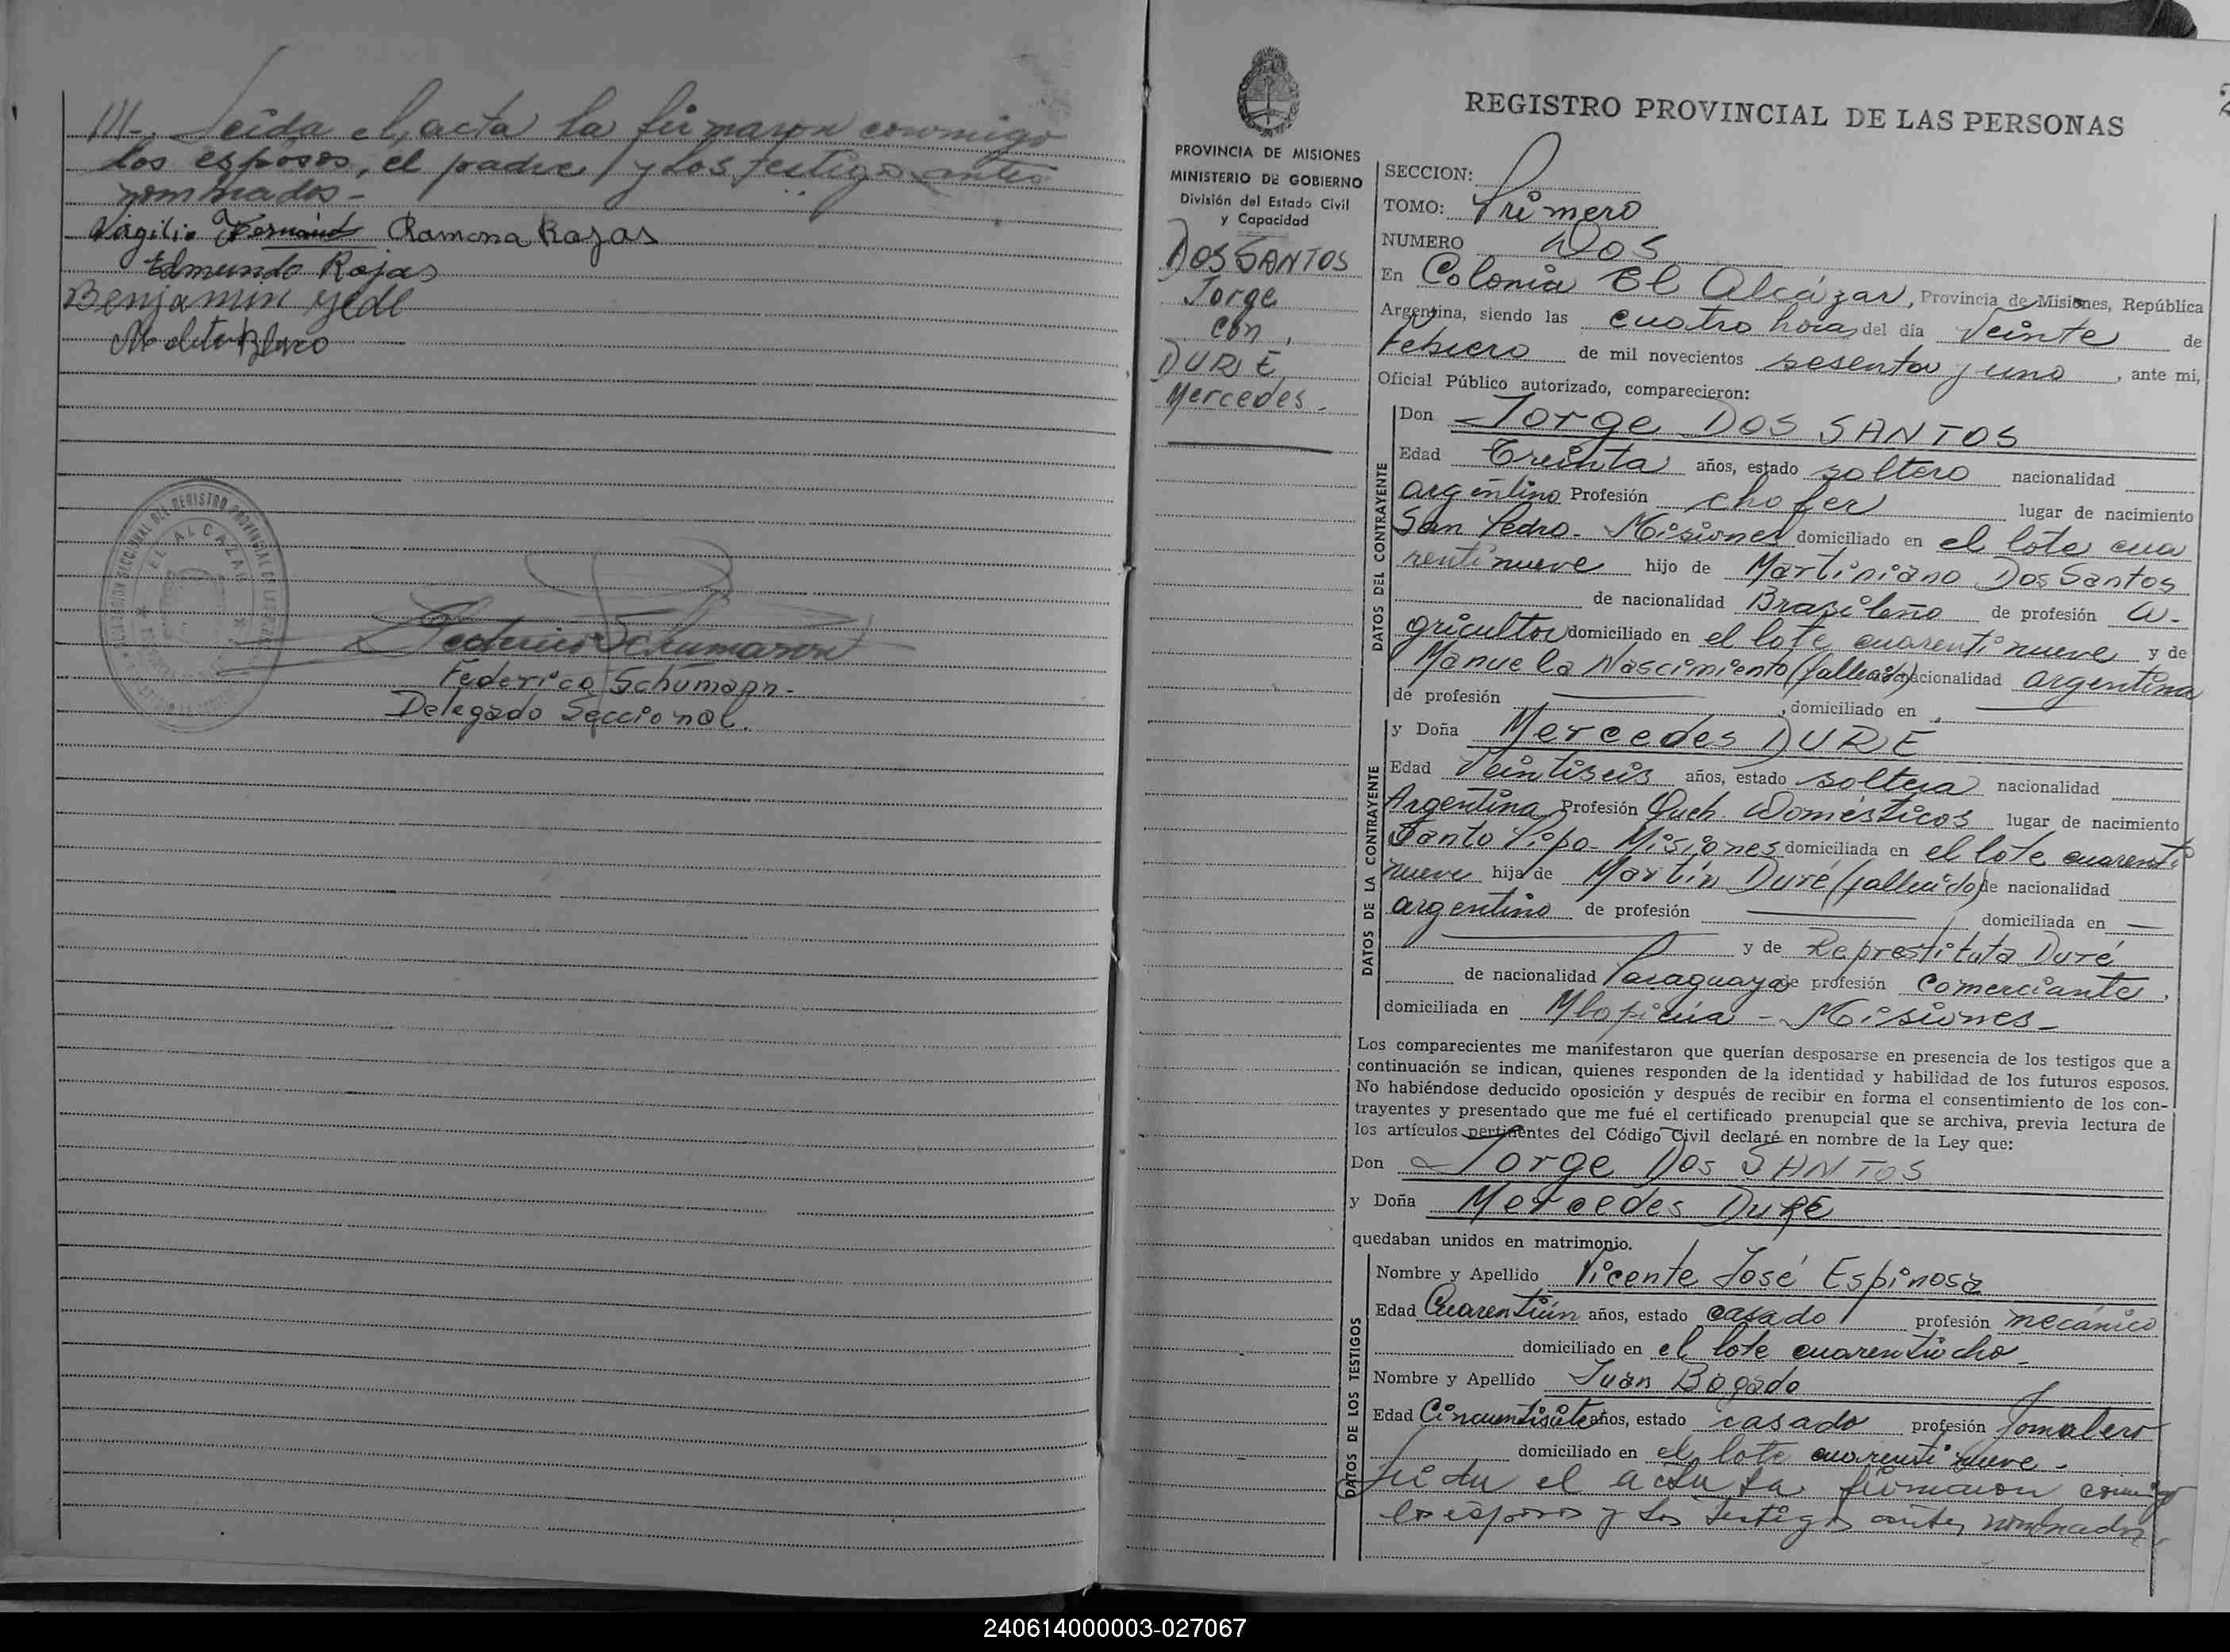 ///-. Leída el acta la firmaron conmigo
los esposos, el padre y los testigos antes
nombrados.-
Virgilio Ramona Rojas
Edmundo Rojas
Benjamin
EL ALCAZAR
Federico Schumann
Federico Schumann.-
Delegado Seccional.
REGISTRO PROVINCIAL DE LAS PERSONAS
PROVINCIA DE MISIONES
MINISTERIO DE GOBIERNO
División del Estado Civil
y Capacidad
DOS SANTOS
Jorge
con
DURE,
Mercedes.-
SECCION:
TOMO: Primero
NUMERO Dos
En Colonia El Alcázar, Provincia de Misiones, República
Argentina, siendo las cuatro horas del día Veinte de
Febrero de mil novecientos sesenta y uno, ante mi,
Oficial Público autorizado, comparecieron:
DATOS DEL CONTRAYENTE
Don Jorge DOS SANTOS
Edad Treinta años, estado soltero nacionalidad
argentino Profesión chofer lugar de nacimiento
San Pedro.- Misiones domiciliado en el lote cua
rentinueve hijo de Martiniano Dos Santos
de nacionalidad Brasileño de profesión a-
gricultor domiciliado en el lote cuarentinueve y de
Manuela Nascimiento (fallecida) nacionalidad argentina
de profesión , domiciliado en
DATOS DE LA CONTRAYENTE
y Doña Mercedes DURE
Edad Veintiseis años, estado soltera nacionalidad
Argentina Profesión Queh. Domésticos lugar de nacimiento
Santo Pipo- Misiones domiciliada en el lote cuarenti
nueve hija de Martín Duré (fallecido) de nacionalidad
argentino de profesión domiciliada en
y de Represtituta Duré
de nacionalidad Paraguaya de profesión Comerciante,
domiciliada en Mbopicúa - Misiones.-
Los comparecientes me manifestaron que querían desposarse en presencia de los testigos que a
continuación se indican, quienes responden de la identidad y habilidad de los futuros esposos.
No habiéndose deducido oposición y después de recibir en forma el consentimiento de los con-
trayentes y presentado que me fué el certificado prenupcial que se archiva, previa lectura de
los artículos pertinentes del Código Civil declaré en nombre de la Ley que:
Don Jorge Dos SANTOS
y Doña Mercedes DURE
quedaban unidos en matrimonio.
DATOS DE LOS TESTIGOS
Nombre y Apellido Vicente José Espinosa
Edad Cuarentiún años, estado casado profesión mecánico
domiciliado en el lote cuarentiocho.
Nombre y Apellido Juan Bogado
Edad Cincuentisiete años, estado casado profesión Jornalero
domiciliado en el lote cuarentinueve.-
Leida el acta la firmaron conmigo
los esposos y los testigos antes nombrados
240614000003-027067